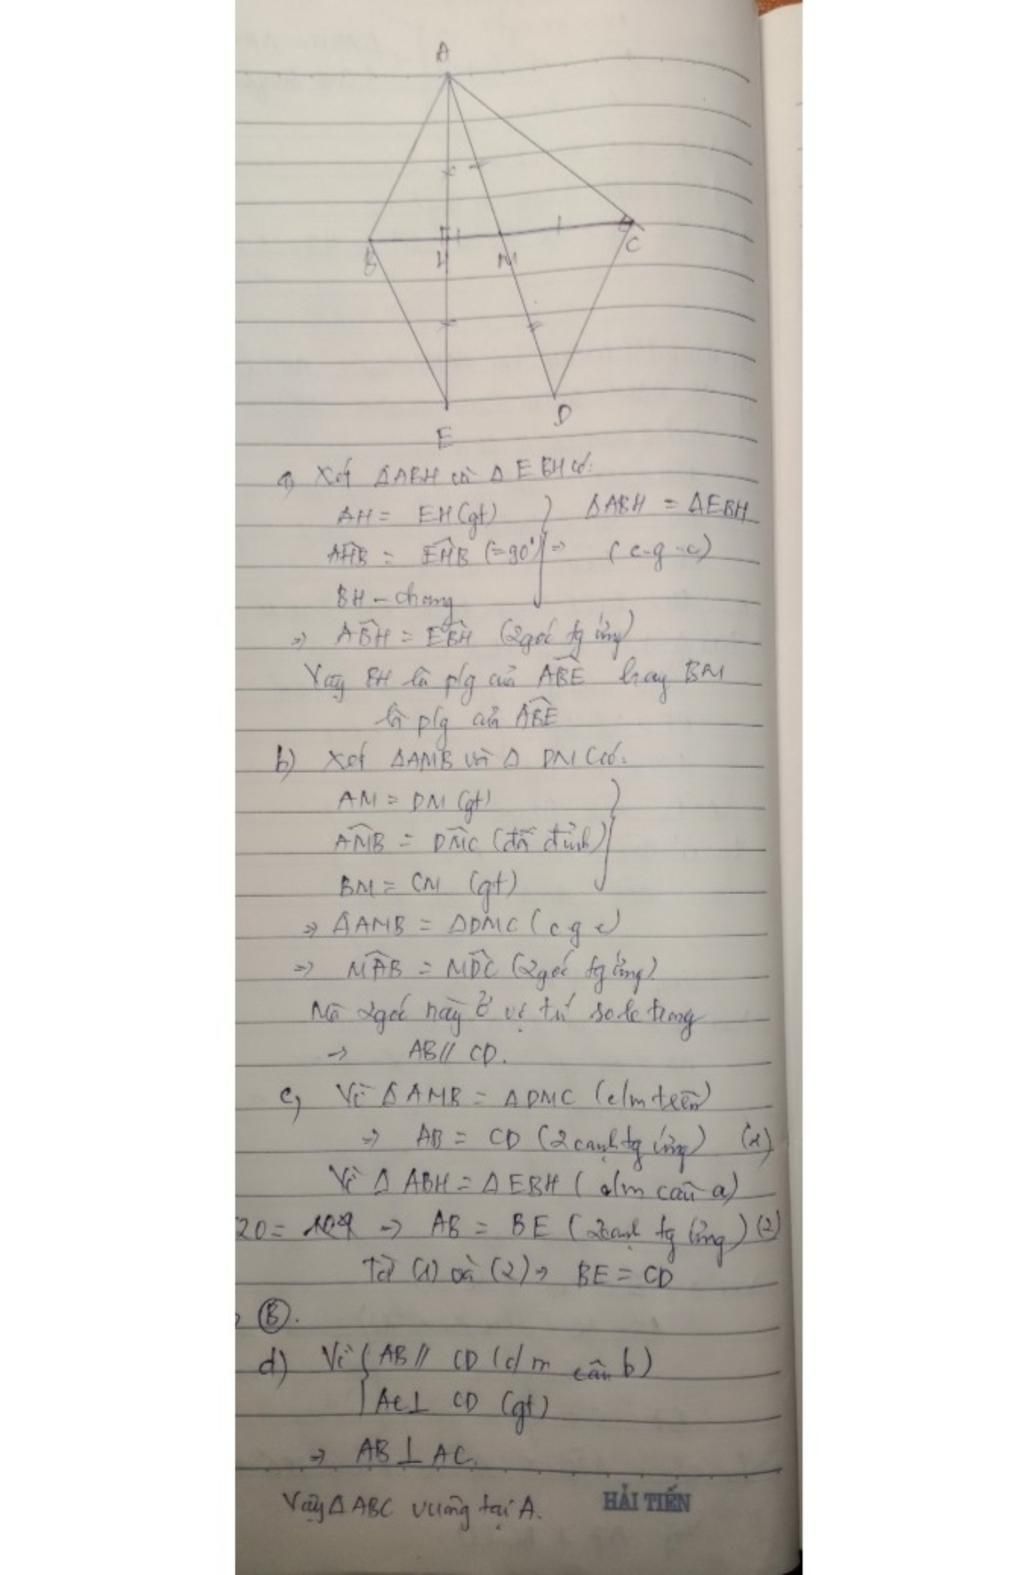 A
B H M C
E D
a) Xét ΔABH và Δ EBH có:
AH = EH (gt) } ΔABH = ΔEBH
AHB = EHB (=90°) => (c-g-c)
BH - chung
=> ABH = EBH (2 góc tg ứng)
Vậy BH là p/g của ABE hay BM
là p/g của ABE
b) Xét ΔAMB và Δ DMC có:
AM = DM (gt)
AMB = DMC (đđ đỉnh)
BM = CM (gt)
=> ΔAMB = ΔDMC (c g c)
=> MAB = MDC (2 góc tg ứng)
Mà 2 góc này ở vị trí so le trong
→ AB // CD.
c, Vì Δ AMB = ΔDMC (c/m trên)
=> AB = CD (2 cạnh tg ứng) (1)
Vì Δ ABH = Δ EBH (c/m câu a)
20 = => AB = BE (2 cạnh tg ứng) (2)
Từ (1) và (2) => BE = CD
B.
d) Vì { AB // CD (c/m câu b)
AC ⊥ CD (gt)
=> AB ⊥ AC.
Vậy Δ ABC vuông tại A.
HẢI TIẾN